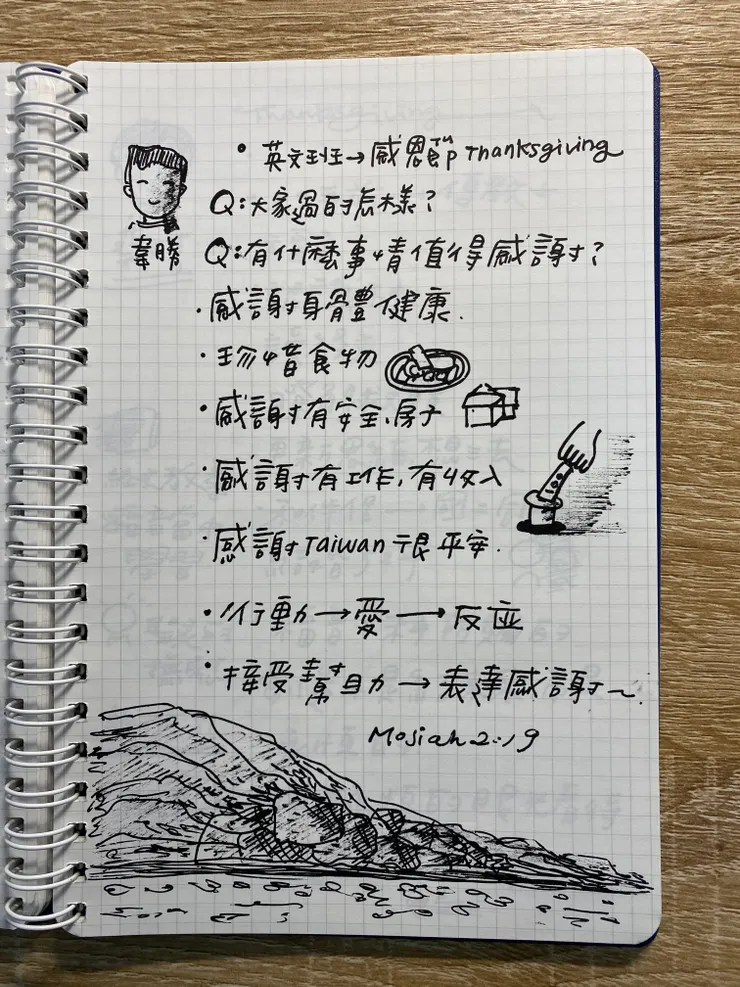 • 英文班→感恩節 Thanksgiving
Q:大家過的怎樣?
韋勝
Q:有什麼事情值得感謝?
·感謝身體健康.
·珍惜食物
·感謝有安全,房子
·感謝有工作,有收入
·感謝Taiwan很平安.
·行動→愛→反应
·接受幫助→表達感謝~.
Mosiah 2:19